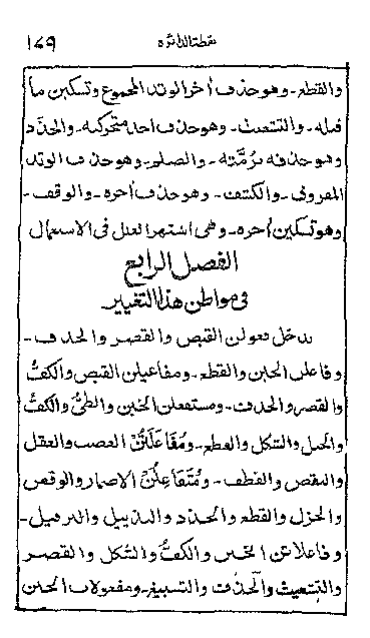 نقطة الدائرة ١٤٩
والقطع ـ وهو حذف آخر الوتد المجموع وتسكين ما
قبله ـ والتشعيث ـ وهو حذف احد متحركيه ـ والحذذ
وهو حذفه برُمَّته ـ والصلم ـ وهو حذف الوتد
المفروق ـ والكشف ـ وهو حذف آخره ـ والوقف ـ
وهو تسكين آخره ـ وهي اشهر العلل في الاستعمال
الفصل الرابع
في مواطن هذا التغيير
يدخل فعولن القبض والقصر والحذف ـ
وفاعلن الخبن والقطع ـ ومفاعيلن القبض والكفُّ
والقصر والحذف ـ ومستفعلن الخبن والطيُّ والكفُّ
والخبل والشكل والقطع ـ ومُفَاعَلَتُنْ العصب والعقل
والنقص والقطف ـ ومُتَفَاعِلُنْ الاضمار والوقص
والخزل والقطع والحذذ والتذييل والترفيل ـ
وفاعلاتن الخبن والكفُّ والشكل والقصر
والتشعيث والحذف والتسبيغ ـ ومفعولات الخبن